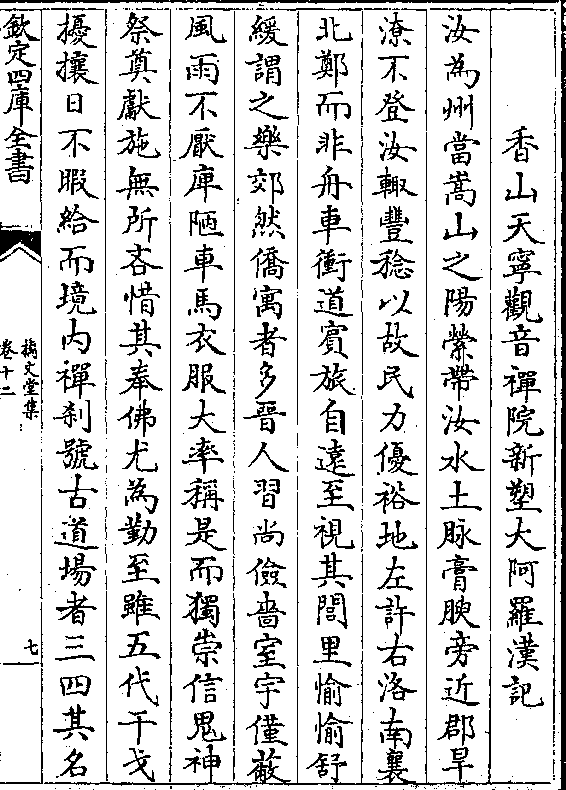 香山天寧觀音禪院新塑大阿羅漢記
汝為州當嵩山之陽縈帶汝水土脉膏腴旁近郡旱
潦不登汝輙豐稔以故民力優裕地左許右洛南襄
北鄭而非舟車衝道賓旅自遠至視其閭里愉愉舒
緩謂之樂郊然僑寓者多晉人習尚儉嗇室宇僅蔽
風雨不厭庫陋車馬衣服大率稱是而獨崇信鬼神
祭奠獻施無所吝惜其奉佛尤為勤至雖五代干戈
擾攘日不暇給而境内禪刹號古道場者三四其名
欽定四庫全書
摛文堂集
卷十二
七